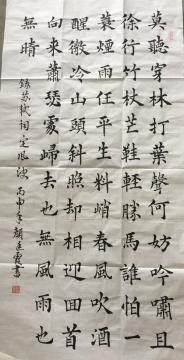 莫聽穿林打葉聲何妨吟嘯且
徐行竹杖芒鞋輕勝馬誰怕一
蓑煙雨任平生料峭春風吹酒
醒微冷山頭斜照却相迎回首
向來蕭瑟處歸去也無風雨也
無晴
錄蘇軾詞定風波 丙申年顏廷霞書